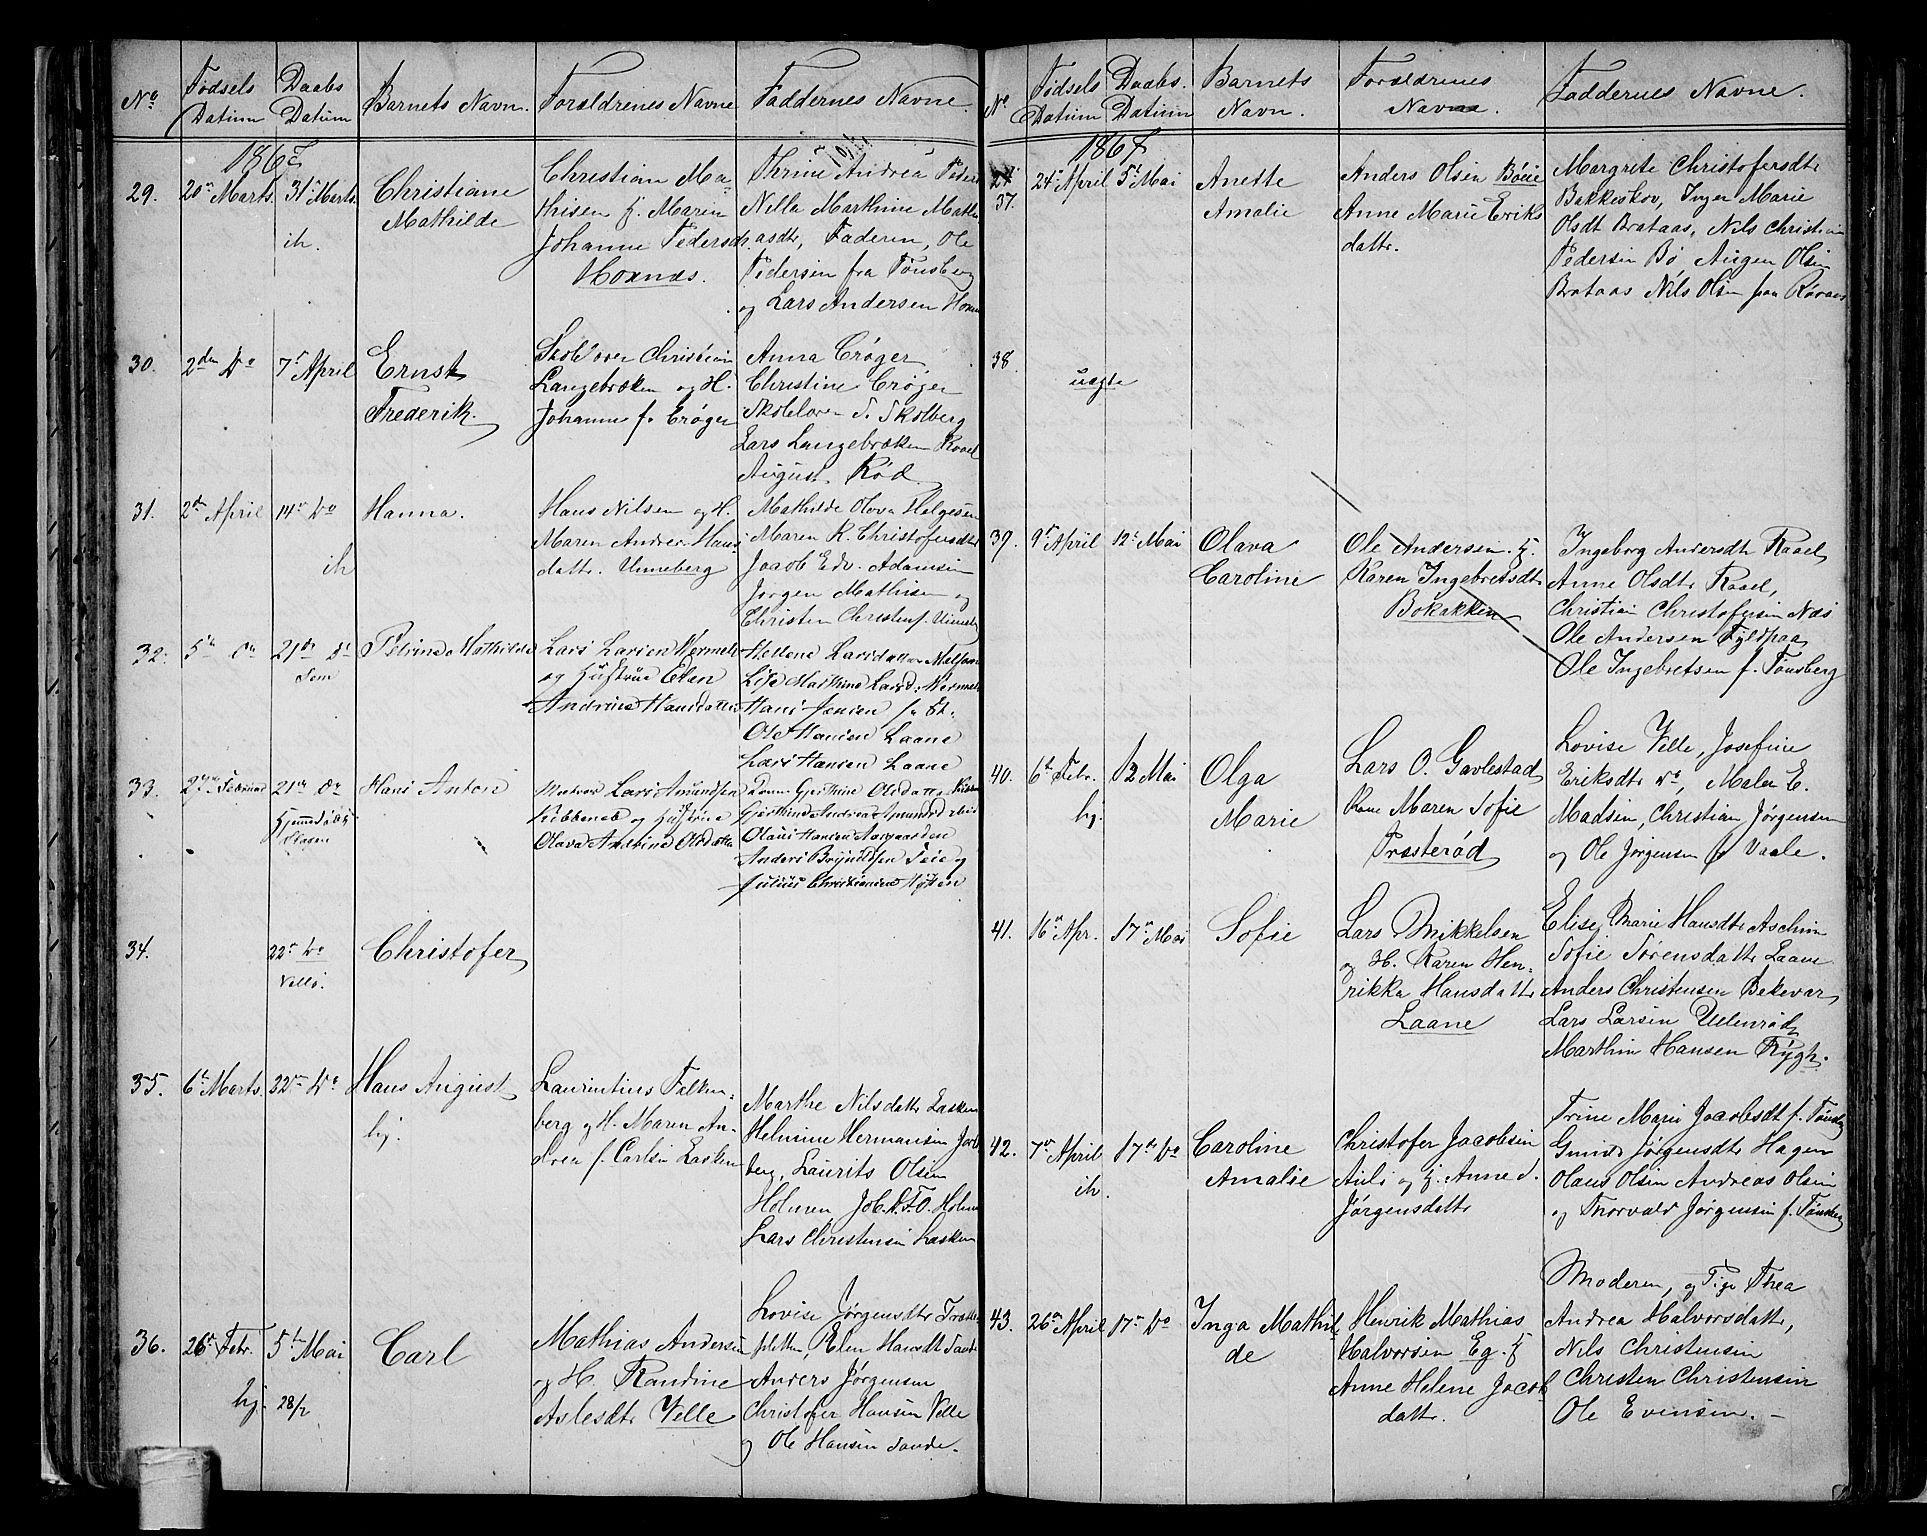 No Fødsels Datum Daabs Datum Barnets Navn. Forældrenes Navne Faddernes Navne.
1867
29. 20de Marts. 31te Marts. ih. Christiane Mathilde
Christian Ma-
thisen & Maren
Johanne Pedersd.
Moxnæs.
Thrine Andrea Peders
Nilla Marthine Mathi
asdtr, Faderen, Ole
Pedersen fra Tønsberg
og Lars Andersen
30. 2den Do 7de April Ernst Frederik.
Christian
Langebræken og H.
Johanne f. Crøger
Anna Crøger
Christine Crøger
Skolelærer S. Skolberg
Lars Langebræken
August Rød.
31. 2den April 14de Do ih Hanna.
Hans Nilsen og H.
Maren Andrea Hans
datter. Unneberg
Mathilde Olava Helgesen
Maren K. Christofersdtr
Jacob Edv. Adamsen
Jørgen Mathisen og
Christen Christens.
32. 5te Do 21de Do Sem Petrine Mathilde
Lars Larsen
og Hustrue Elen
Andrine Hansdatter
Hellene Larsdatter
Lise Marthine Larsd.
Hans Jensen
Ole Hansen Laane
Lars Hansen Laane
33. 27de Februar 21de Do Hans Anton
Lars Amundsen
og Hustrue
Olava Andrine Olsdatter
Gjerthine Olsdatter
Andrea Amundsd.
Olaus Hansen Aargaarden
Anders Brynildsen Teie og
Julius Christiansen
34. 22de Do Vallø. Christofer
35. 6te Marts. 22de Do Hans August hj.
Laurentius Falken-
berg og H. Maren An-
drea f. Carlsen Lasken
Marthe Nilsdatter Lasken
Helmine Hermansen Jarls
berg, Laurits Olsen
Holmen Joh. A. F. O. Holm
Lars Christensen Lasken
36. 26de Febr. hj. 5te Mai 28/2 Carl
Mathias Andersen
og H. Randine
Aslesdtr Velle
Lovise Jørgensdtr Træde
pletten, Elen Hansdt Sande
Anders Jørgensen
Christofer Hansen Velle
og Ole Hansen Sande.
No Fødsels Datum Daabs. Datum Barnets Navn. Forældrenes Navne. Faddernes Navne.
1867
37. 24de April 5te Mai Anette Amalie
Anders Olsen Bøeie
Anne Marie Eriks
datter.
Margrete Christofersdtr
Bakkeskov, Inger Marie
Olsdt Brataas, Nils Christian
Pedersen Bø Augen Olsen
Brataas Nils Olsen paa Røraas
38.
uægte
39. 9de April 12te Mai Olava Caroline
Ole Andersen. &
Karen Ingebretsdtr
Bokakken
Ingeborg Andersdtr Raael
Anne Olsdtr Raael,
Christian Christofersen Næs
Ole Andersen Fyldpaa
Ole Ingebretsen f. Tønsberg
40. 6te Febr. hj. 12 Mai Olga Marie
Lars O. Gavlestad
Kone Maren Sofie
Præsterød
Lovise Velle, Josefine
Eriksdtr Do, Malen E.
Madsen, Christian Jørgensen
og Ole Jørgensen f Vaale.
41. 16de Apr. 17de Mai Sofie
Lars Mikkelsen
og H. Karen Hen-
rikka Hansdatter
Laane
Elise Marie Hansdtr Aschim
Sofie Sørensdatter Laane
Anders Christensen Bekevar
Lars Larsen Ullenrød
Marthin Hansen Rygh.
42. 7de April ih. 17de Do Caroline Amalie
Christofer Jacobsen
Auli og H. Anne S.
Jørgensdatter
Trine Marie Jacobsdt f. Tønsberg
Gunild Jørgensdtr Hagen
Olaus Olsen Andreas Olsen
og Thorvald Jørgensen f. Tønsberg
43. 26de April 17de Do Inga Mathil de
Henrik Mathias
Halvorsen Eg. &
Anne Helene Jacob
datter.
Moderen, og Pige Thea
Andrea Halvorsdatter,
Nils Christensen
Christen Christensen
Ole Evensen. –